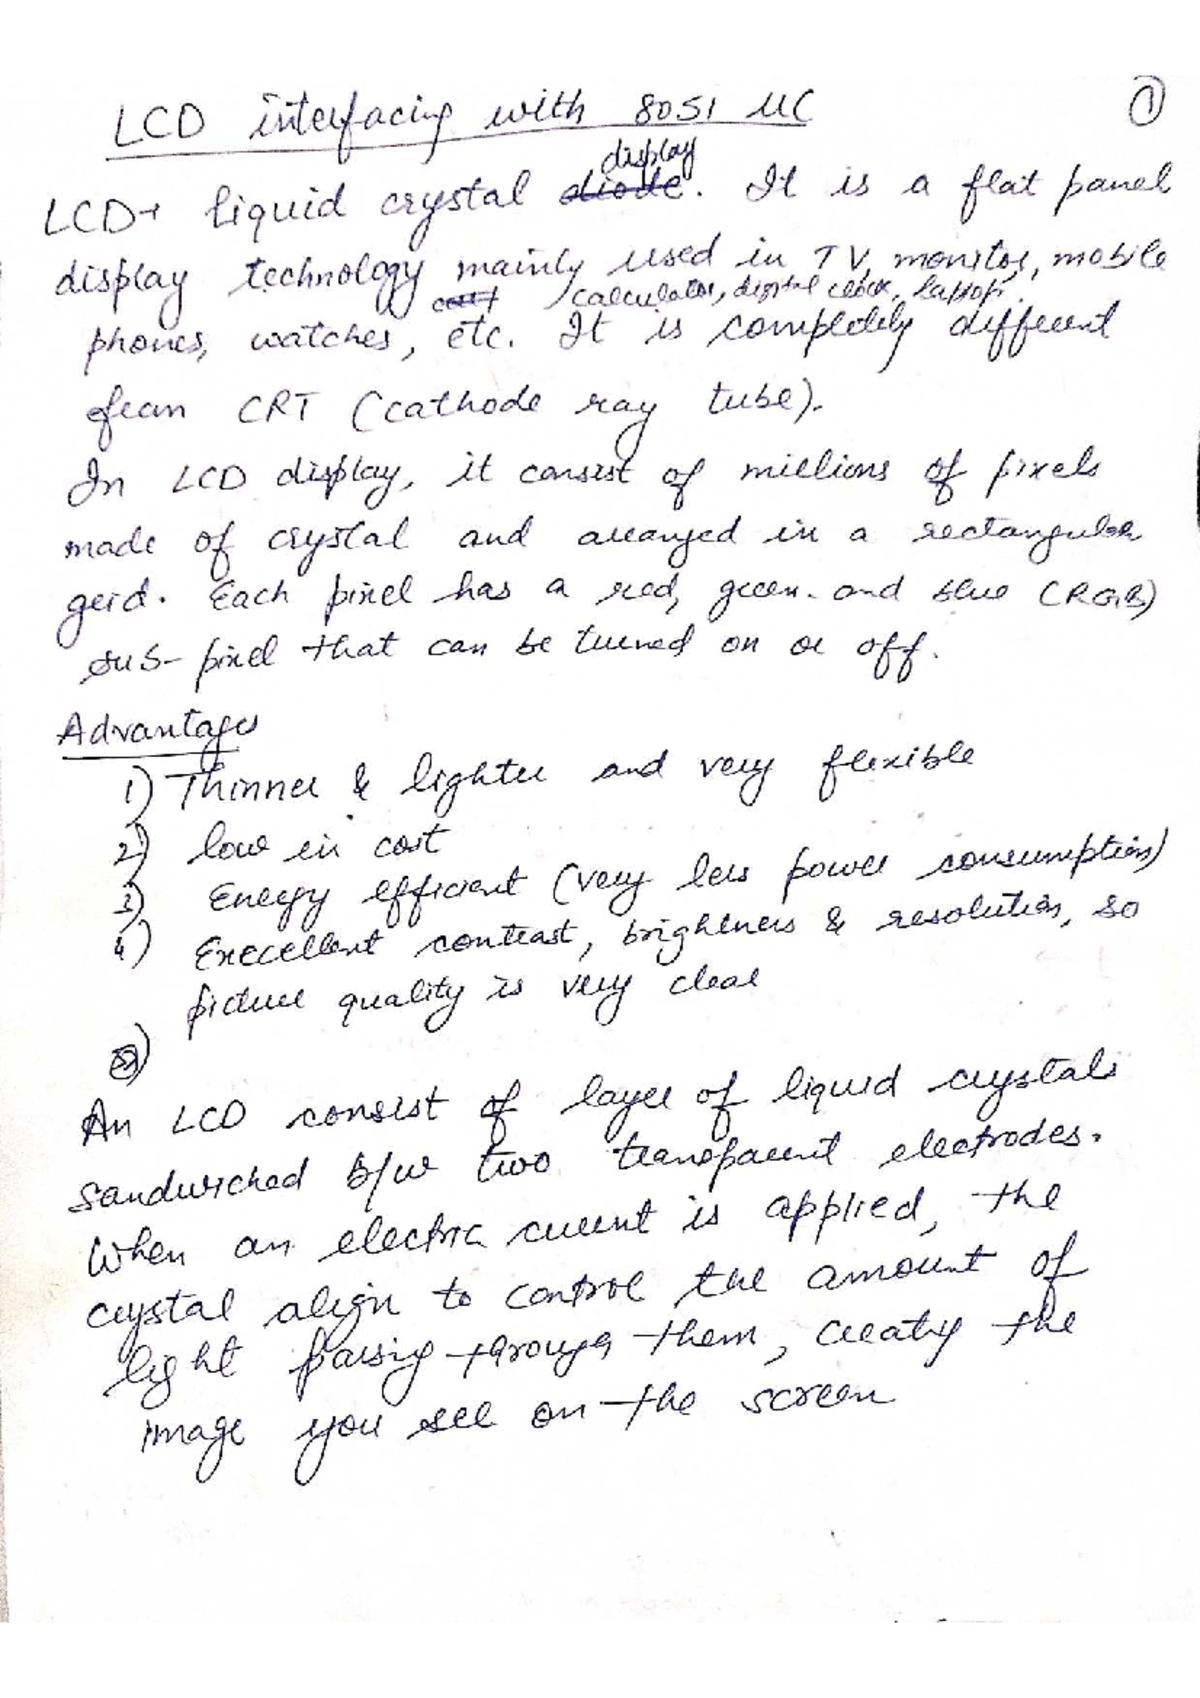 LCD interfacing with 8051 UC
①
LCD→ liquid crystal diode display. It is a flat panel
display technology mainly used in TV, monitor, mobile
calculator, digital clock, laptop,
phones, watches, etc. It is completely different
from CRT (cathode ray tube).
In LCD display, it consist of millions of pixels
made of crystal and arranged in a rectangular
grid. Each pixel has a red, green and blue (RGB)
sub-pixel that can be turned on or off.
Advantages
1) Thinner & lighter and very flexible
2) low in cost
3) Energy efficient (very less power consumption)
4) Execellent contrast, brightness & resolution, so
picture quality is very clear
An LCD consist of layer of liquid crystals
sandwiched b/w two transparent electrodes.
When an electric current is applied, the
crystal align to control the amount of
light passing through them, creating the
image you see on the screen